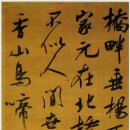 橋畔垂楊
家元在北橋
不似人間世
香山鳥啼